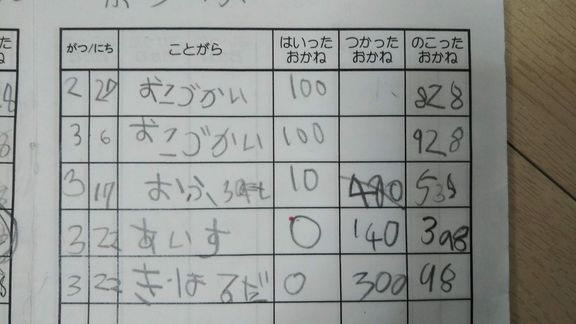 がつ/にち ことがら はいったおかね つかったおかね のこったおかね
2 27 おこづかい 100 828
3 6 おこづかい 100 928
3 17 10 400 538
3 22 あいす 0 140 398
3 22 0 300 98